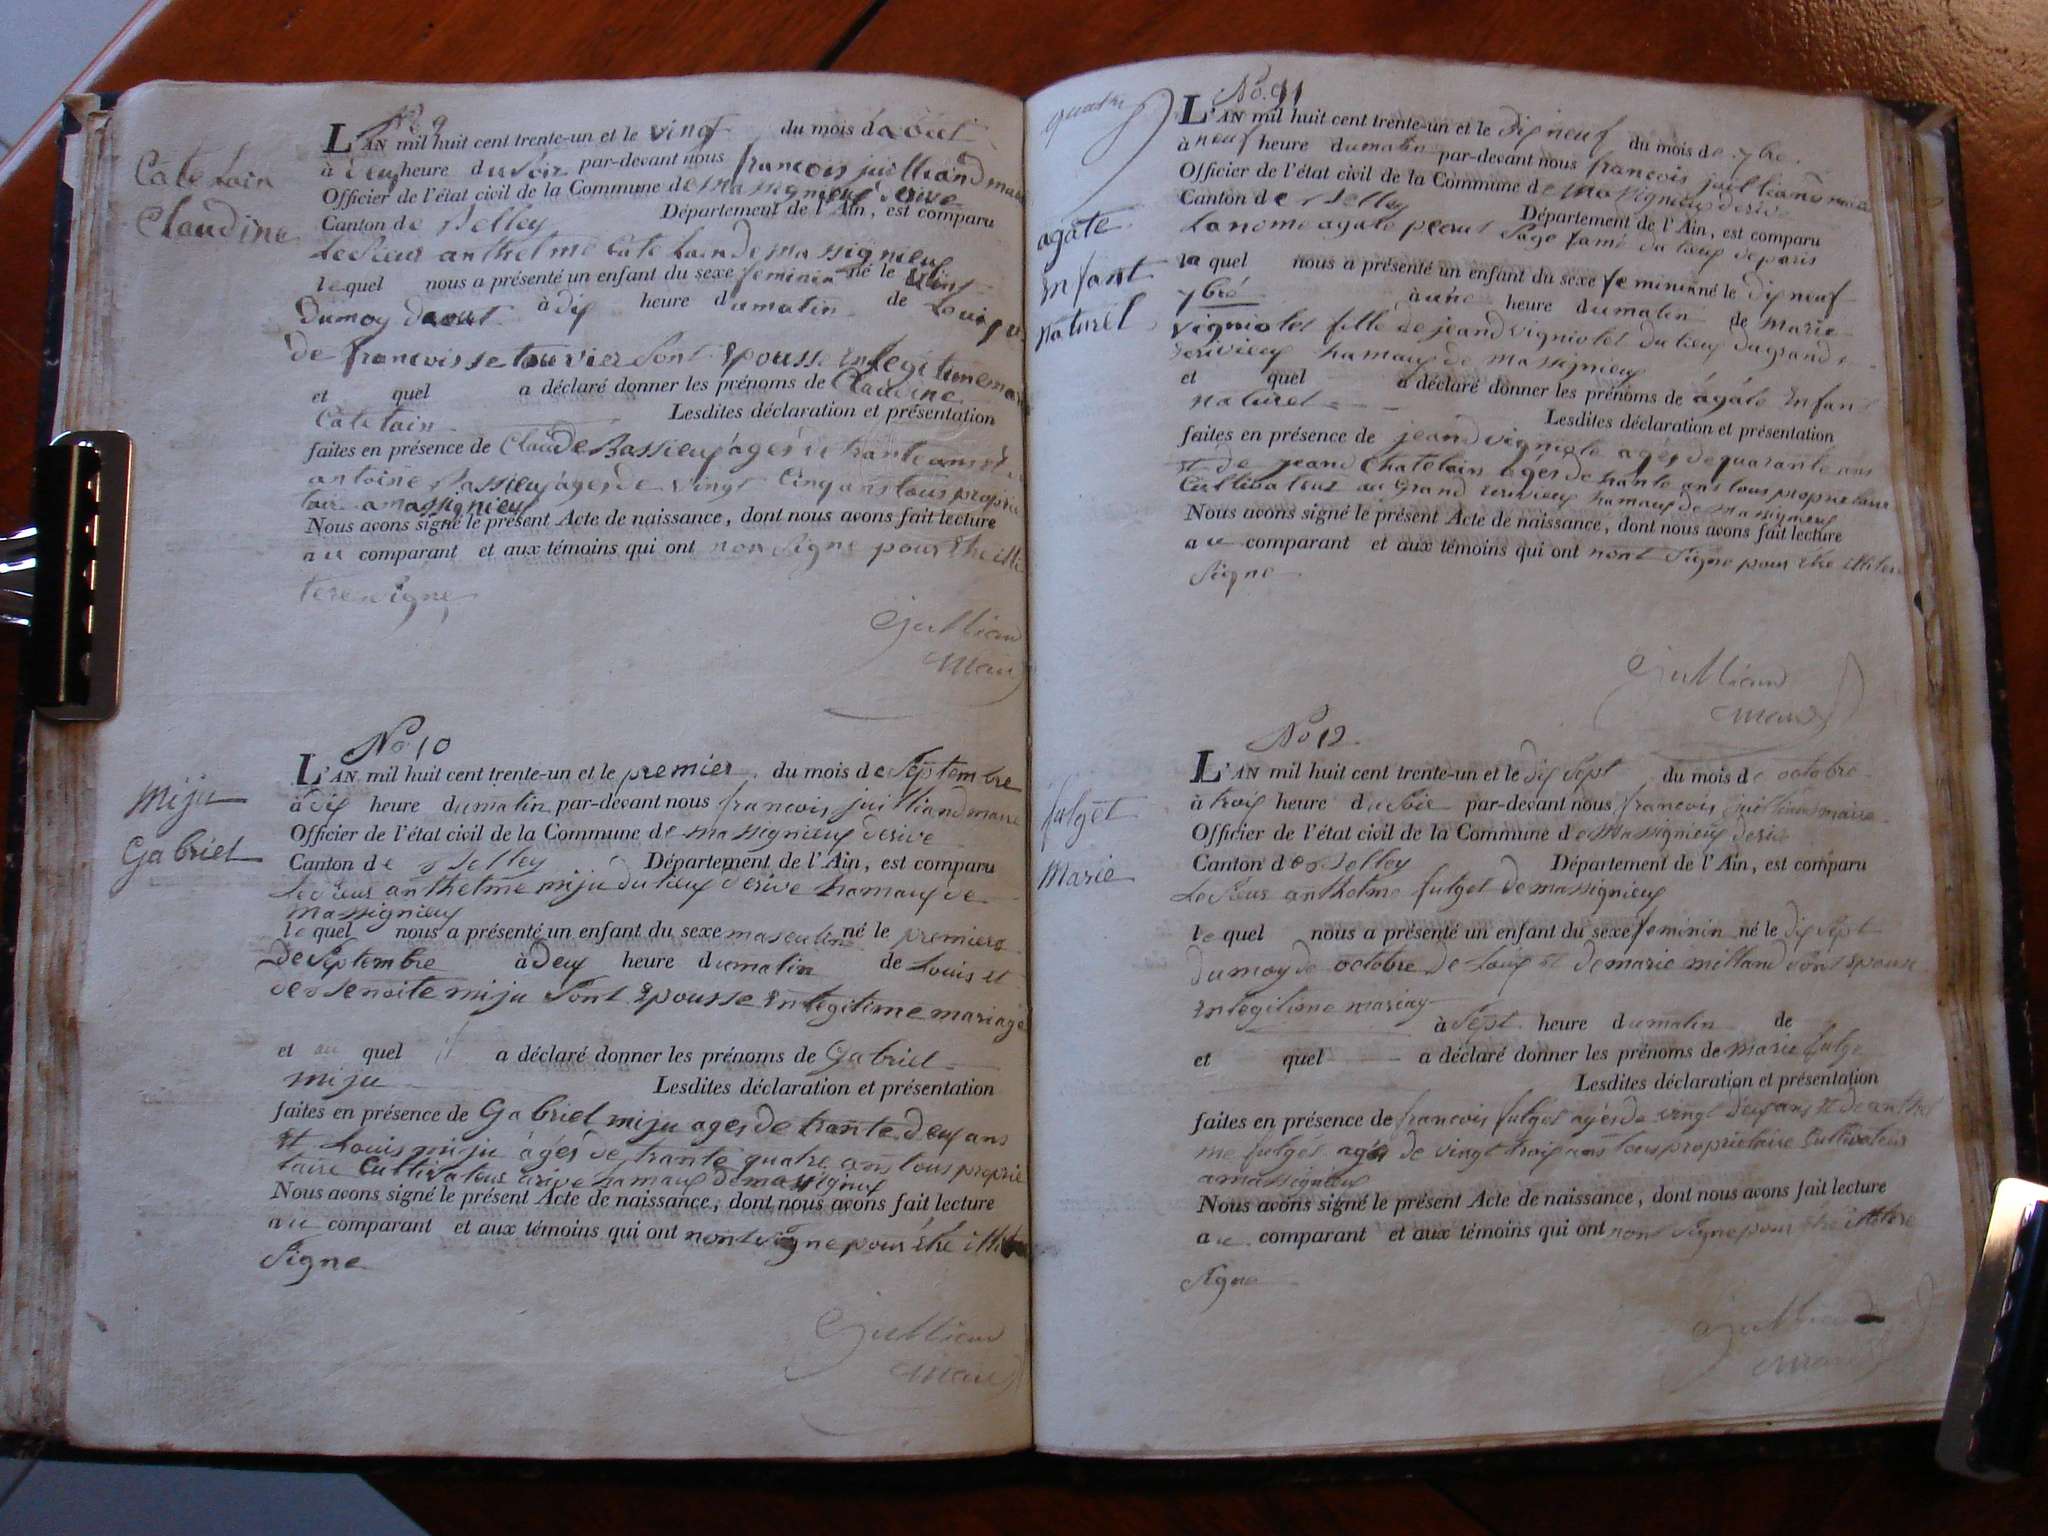 No 9
L'AN mil huit cent trente-un et le vingt du mois daout
à deux heure du soir par-devant nous francois juilliand maire
Officier de l'état civil de la Commune de massignieux de rive
Canton de Belley Département de l'Ain, est comparu
Catelain
Claudine
le sieur anthelme Catelain de massignieux
le quel nous a présenté un enfant du sexe feminin né le vint
du moy daout à dix heure du matin de Louis
de francoisse touvier sont Epousse En legitime
et quel a déclaré donner les prénoms de Claudine
Catelain Lesdites déclaration et présentation
faites en présence de Claude Bassieux agés de trante ans et
antoine Bassieux agés de vingt Cinq ans tous proprié
taire a massignieux
Nous avons signé le présent Acte de naissance, dont nous avons fait lecture
au comparant et aux témoins qui ont non signe pour Etre illi
tere signe
Juilliand
maire
No 10
L'AN mil huit cent trente-un et le premier du mois de Septembre
à dix heure du matin par-devant nous francois juilliand maire
Officier de l'état civil de la Commune de massignieux derive
Canton de Belley Département de l'Ain, est comparu
miju
Gabriel
le sieur anthelme miju du lieux derive hamaux de
massignieux
le quel nous a présenté un enfant du sexe masculin né le premiere
de Septembre à deux heure du matin de Louis et
de Benoite miju sont Epousse En legitime mariage
et au quel il a déclaré donner les prénoms de Gabriel
miju Lesdites déclaration et présentation
faites en présence de Gabriel miju ages de trante deux ans
Et Louis miju ágés de trante quatre ans tous proprié
taire Cultivateur a rive hamaux de massignieux
Nous avons signé le présent Acte de naissance, dont nous avons fait lecture
au comparant et aux témoins qui ont nont signe pour Etre illit
Signe
Juilliand
maire
No 11
L'AN mil huit cent trente-un et le dix neuf du mois de 7bre
à neuf heure du matin par-devant nous francois juilliand maire
Officier de l'état civil de la Commune de massignieux derive
Canton de Belley Département de l'Ain, est comparu
agate
Enfant
naturel
la nome agate sage fame du lieux de paris
la quel nous a présenté un enfant du sexe feminin né le dix neuf
7bre à une heure du matin de marie
vigniolet fille de jeand vigniolet du lieux du grand
hamaux de massignieux
et quel a déclaré donner les prénoms de ágáte Enfan
naturel Lesdites déclaration et présentation
faites en présence de jeand vigniolet agés de quarante ans
Et de jeand Chatelain agés de trante ans tous proprietaire
Cultivateur au Grand hamaux de massignieux
Nous avons signé le présent Acte de naissance, dont nous avons fait lecture
au comparant et aux témoins qui ont nont signe pour Etre illitere
Signe
Juilliand
maire
No 12
L'AN mil huit cent trente-un et le dix sept du mois de octobre
à trois heure du soir par-devant nous francois juilliand maire
Officier de l'état civil de la Commune de massignieux derive
Canton de Belley Département de l'Ain, est comparu
fulget
Marie
le sieur anthelme fulget de massignieux
le quel nous a présenté un enfant du sexe feminin né le dix sept
du moy de octobre de Louis et de marie milland sont Epousse
En legitime mariag
à sept heure du matin de
et quel a déclaré donner les prénoms de marie fulge
Lesdites déclaration et présentation
faites en présence de francois fulget agés de vingt deux ans Et de anthel
me fulget agés de vingt trois ans tous proprietaire Cultivateur
a massignieux
Nous avons signé le présent Acte de naissance, dont nous avons fait lecture
au comparant et aux témoins qui ont nont signe pour Etre illitere
Signe
Juilliand
maire